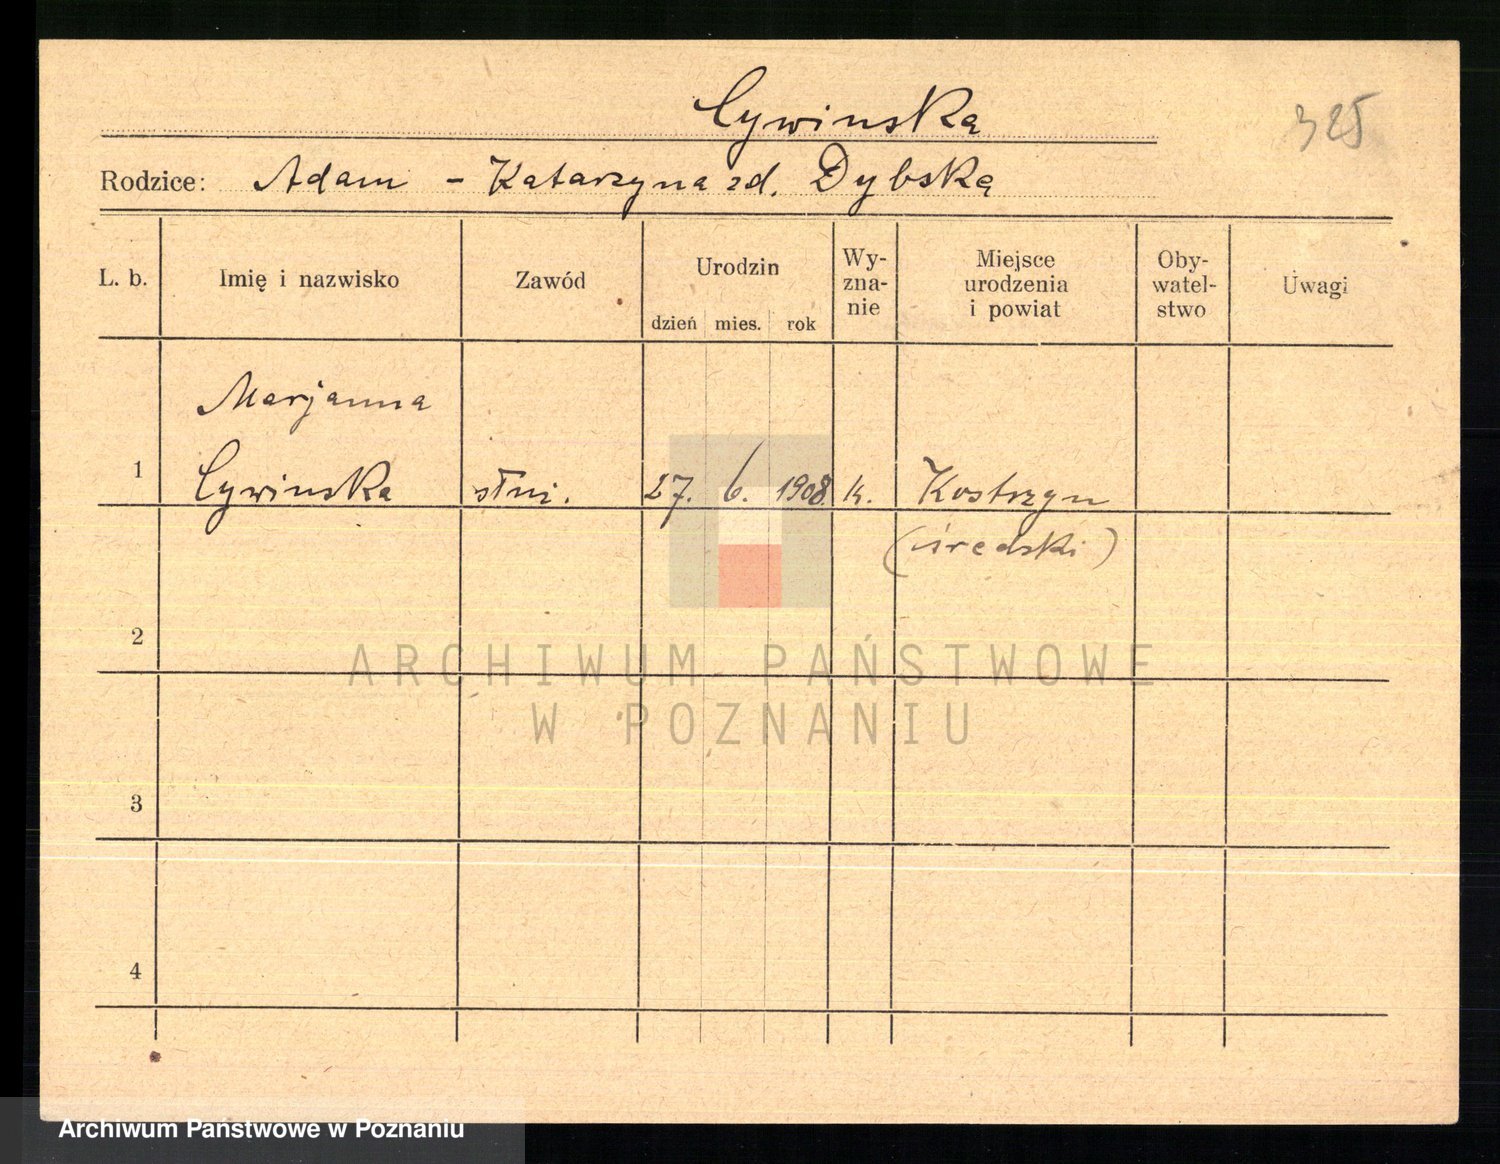 Cywinska
325
Rodzice: Adam - Katarzyna zd. Dybska
L. b.
Imię i nazwisko
Zawód
Urodzin
dzień mies. rok
Wy-
zna-
nie
Miejsce
urodzenia
i powiat
Oby-
watel-
stwo
Uwagi
Marjanna
1 Cywinska słui. 27. 6. 1908. k. Kostrzyn
(średski)
2
ARCHIWUM PAŃSTWOWE
W POZNANIU
3
4
Archiwum Państwowe w Poznaniu